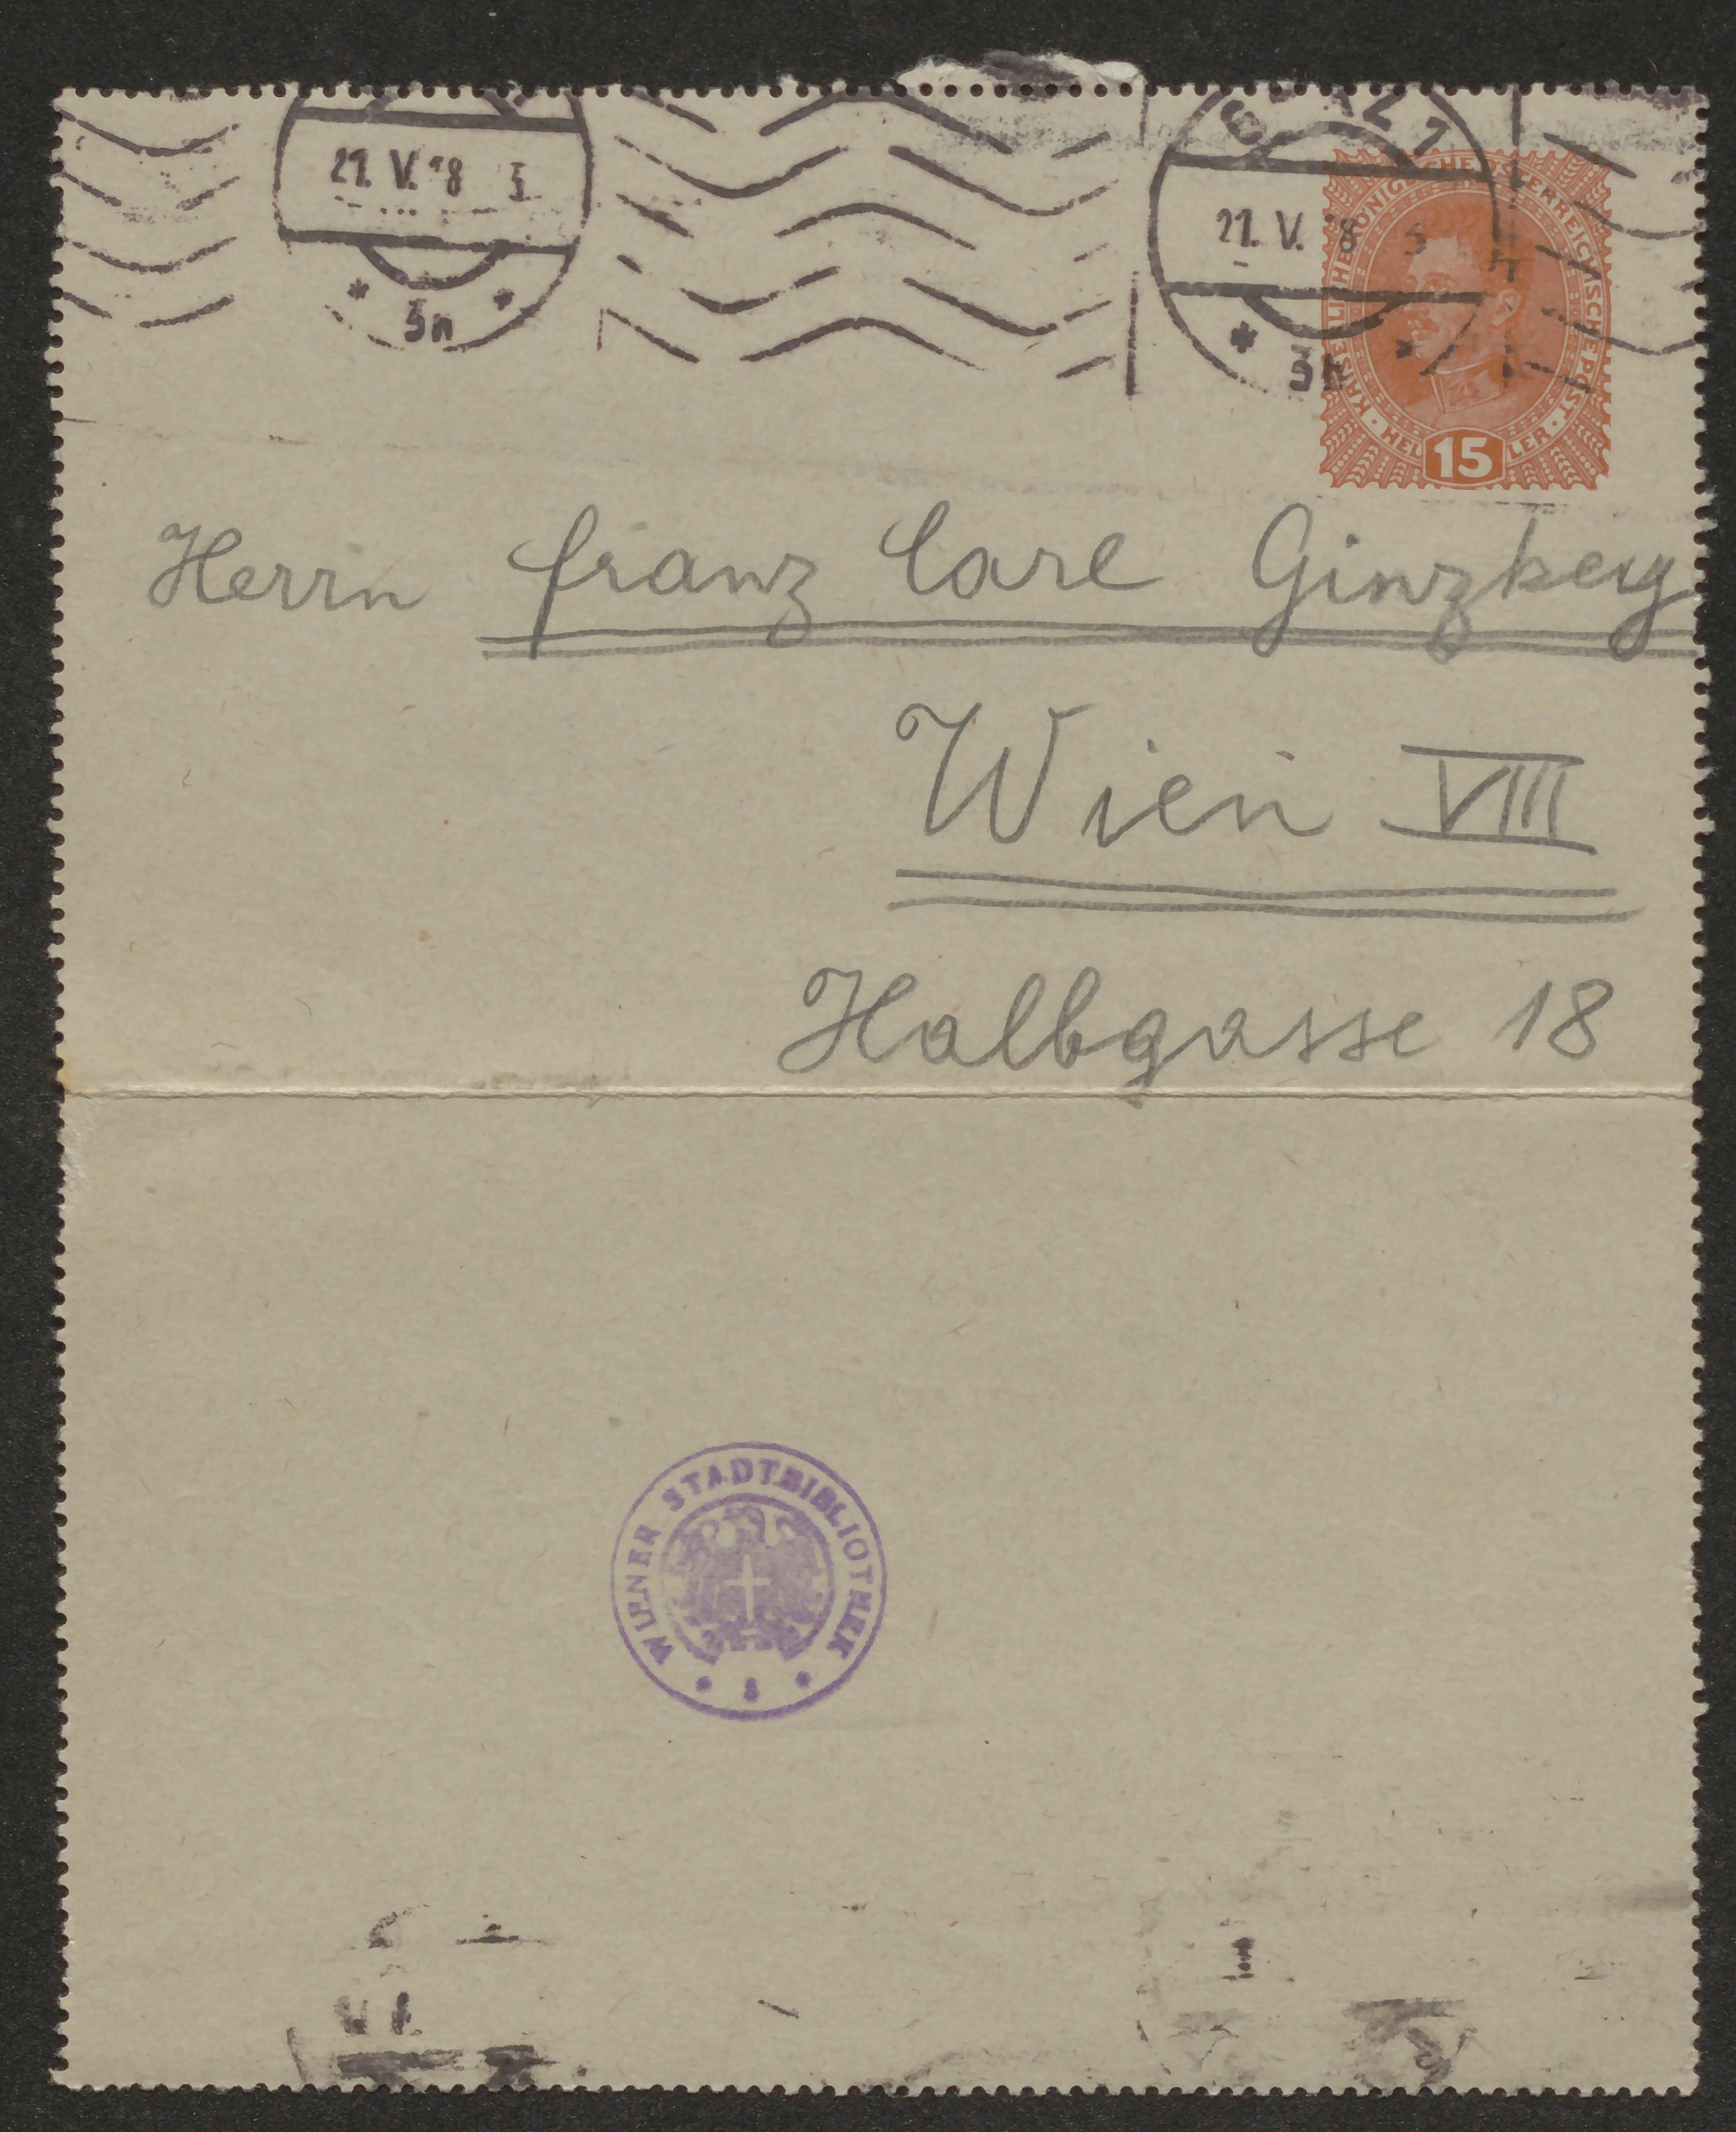 21. V. 18 5
3n
21. V. 18 5
3n
KAISERLICHE KÖNIGLICHE ÖSTERREICHISCHE POST
HELLER
15
Herrn Franz Carl Ginzkey
Wien VIII
Halbgasse 18
WIENER STADTBIBLIOTHEK